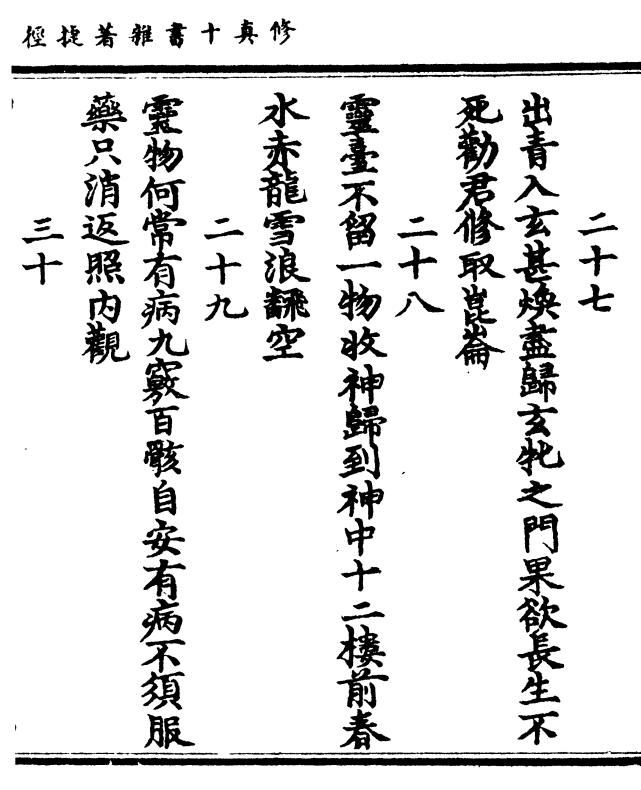 修真十書雜著捷徑
二十七
出青入玄甚煥盡歸玄牝之門果欲長生不
死勸君修取崑崙
二十八
靈臺不留一物收神歸到神中十二樓前春
水赤龍雪浪飜空
二十九
靈物何常有病九竅百骸自安有病不須服
藥只消返照內觀
三十